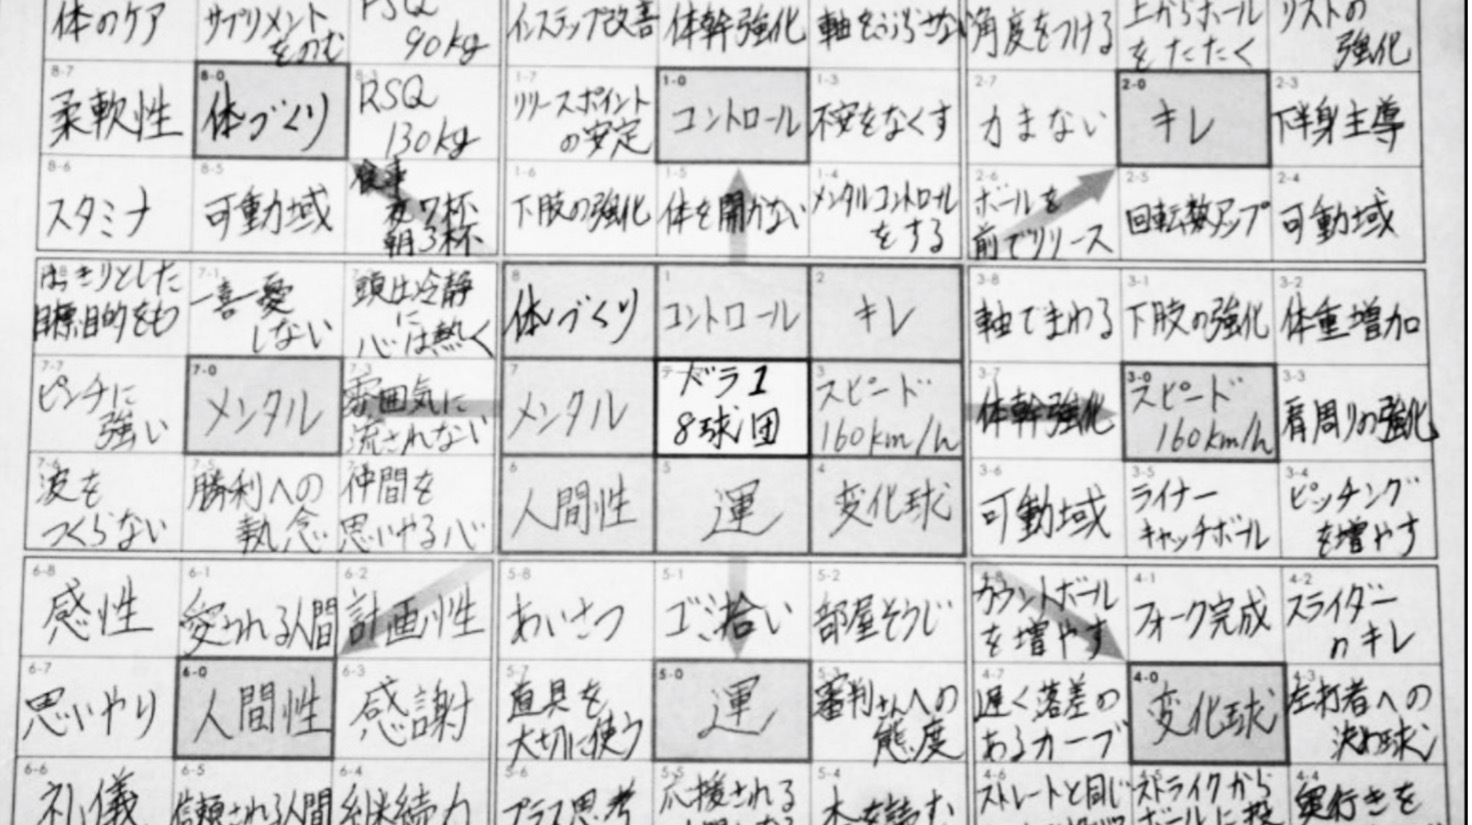 体のケア
サプリメント
をのむ
FSQ
90kg
インステップ改善
体幹強化
軸をぶらさない
角度をつける
上からボール
をたたく
リストの
強化
8-7
柔軟性
8-0
体づくり
8-3
RSQ
130kg
1-7
リリースポイント
の安定
1-0
コントロール
1-3
不安をなくす
2-7
力まない
2-0
キレ
2-3
下半身主導
8-6
スタミナ
8-5
可動域
食事
夜7杯
朝3杯
1-6
下肢の強化
1-5
体を開かない
1-4
メンタルコントロール
をする
2-6
ボールを
前でリリース
2-5
回転数アップ
2-4
可動域
はっきりとした
目標、目的をもつ
7-1
一喜一憂
しない
頭は冷静
に
心は熱く
8
体づくり
1
コントロール
2
キレ
3-8
軸でまわる
3-1
下肢の強化
3-2
体重増加
7-7
ピンチに
強い
7-0
メンタル
7-3
雰囲気に
流されない
7
メンタル
ドラ1
8球団
3
スピード
160km/h
3-7
体幹強化
3-0
スピード
160km/h
3-3
肩周りの強化
7-6
波を
つくらない
7-5
勝利への
執念
仲間を
思いやる心
6
人間性
5
運
4
変化球
3-6
可動域
3-5
ライナー
キャッチボール
3-4
ピッチング
を増やす
6-8
感性
6-1
愛される人間
6-2
計画性
5-8
あいさつ
5-1
ゴミ拾い
5-2
部屋そうじ
4-8
カウントボール
を増やす
4-1
フォーク完成
4-2
スライダー
のキレ
6-7
思いやり
6-0
人間性
6-3
感謝
5-7
道具を
大切に使う
5-0
運
5-3
審判さんへの
態度
4-7
遅く落差の
あるカーブ
4-0
変化球
4-3
左打者への
決め球
6-6
礼儀
6-5
信頼される人間
6-4
継続力
5-6
プラス思考
5-5
応援される
5-4
本を読む
4-6
ストレートと同じ
4-5
ストライクから
ボールに投
4-4
奥行きを